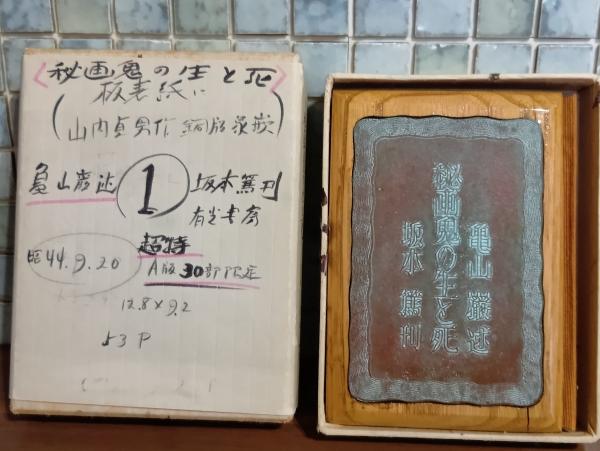 秘画鬼の生と死
板表紙に
(山内貞男作 銅版象嵌)
亀山巌述
①
坂本篤刊
有光書房
昭44.9.20
超特
A版30部限定
12.8×9.2
53P
亀山 巌述
秘画鬼の生と死
坂本 篤刊